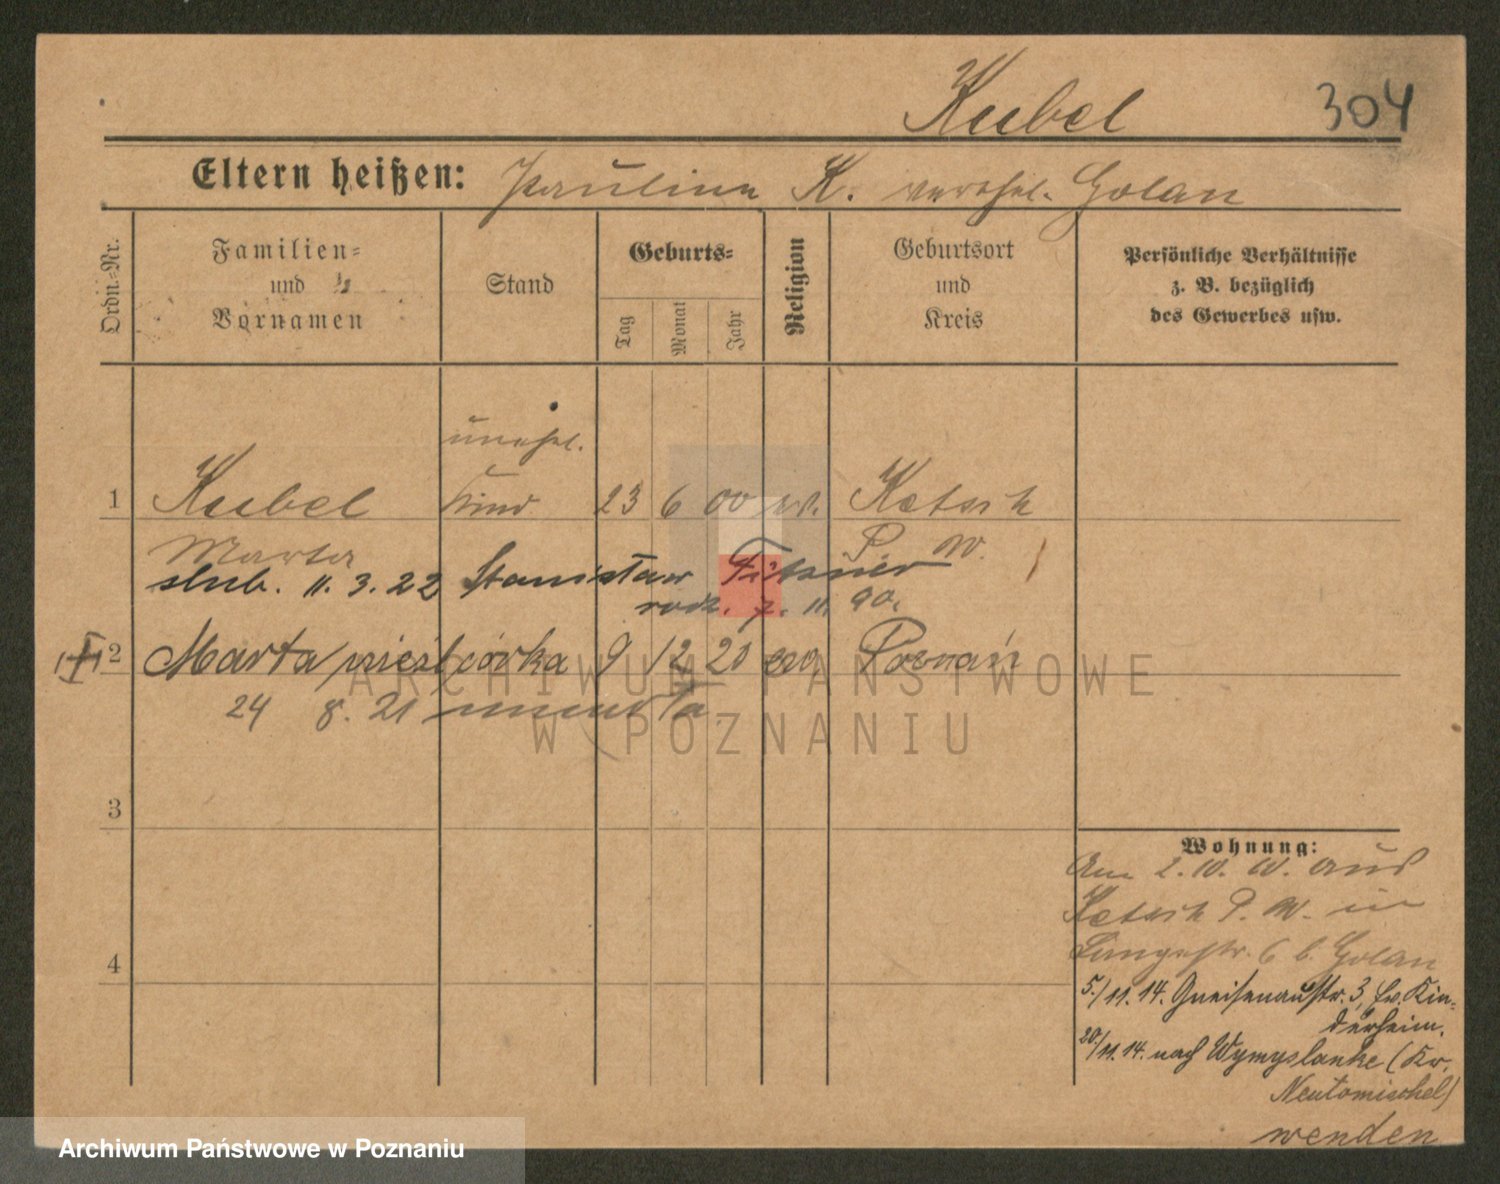 Kubel 304
Eltern heißen: Paulina K. verehel. Golan
Ordn.=Nr.
Familien=
und
Vornamen
Stand
Geburts=
Tag
Monat
Jahr
Religion
Geburtsort
und
Kreis
Persönliche Verhältnisse
z. B. bezüglich
des Gewerbes usw.
unehel.
1 Kubel Kind 23 6 00 ev. Ketsch
Marta P. W.
slub. 11. 3. 22 Stanisław Fitzner
rodz. 7. 11. 90.
2 Marta nieśl. córka 9 12 20 ew. Poznań
24 8. 21 umarła
3
4
Wohnung:
Am 2. 10. 10. aus
Ketsch P. W. in
Langestr. 6 b. Golan
5./11. 14. Gneisenaustr. 3, Ev. Kin-
derheim.
20./11. 14. nach Wymyslanke (Kr.
Neutomischel)
wenden
ARCHIWUM PAŃSTWOWE
W POZNANIU
Archiwum Państwowe w Poznaniu